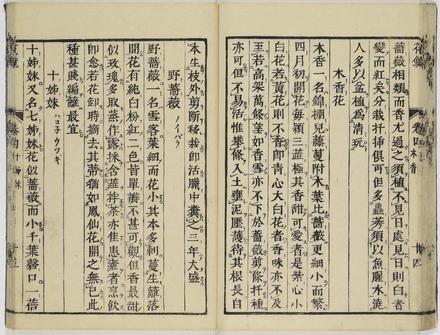 薔薇相類而香尤過之須植不見日處見日則白者
變而紅矣分栽扦插俱可但多蟲莠須以魚腥水澆
人多以盆植爲清玩
木香花
木香一名錦棚兒藤蔓附木葉比薔薇更細小而繁
四月初開花每穎三蕊極其香甜可愛者是紫心小
白花若黄花則不香卽青心大白花者香味亦不及
至若高架萬條望如香雪亦不下於薔薇剪條扦種
亦可但不易活惟攀條入土壅泥壓護待其根長自
本生枝外剪斷移栽卽活臘中糞之三年大盛
野薔薇
野薔薇一名雪客葉細而花小其本多刺蔓生籬落
開花有純白粉紅二色皆單瓣不甚可觀但香最甜
似玫瑰多取蒸作露採含蕊拌茶亦佳患瘧者烹飲
卽愈若花卸時摘去其蒂猶如鳳仙花開之無已此
種甚賤編籬最宜
十姊妹
十姊妹又名七姊妹花似薔薇而小千葉磬口一蓓